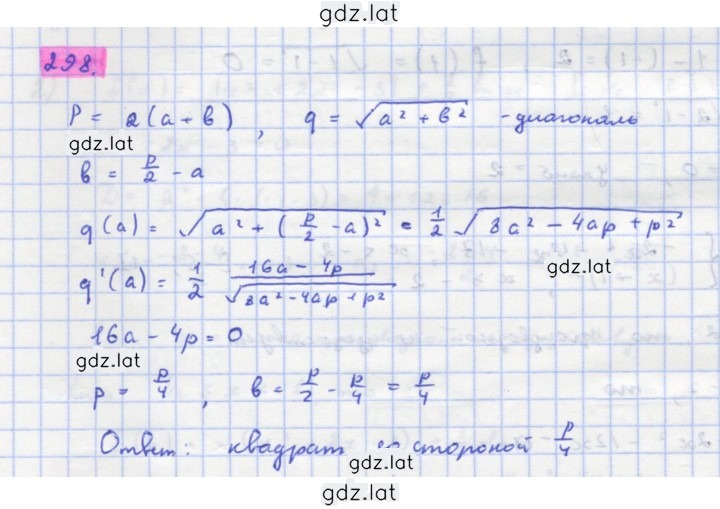 gdz.lat
298.
P = 2(a + b), q = √(a² + b²) - диагональ
gdz.lat
b = p/2 - a
q(a) = √(a² + (p/2 - a)²) = 1/2 √(8a² - 4ap + p²)
gdz.lat
q'(a) = 1/2 (16a - 4p)/√(8a² - 4ap + p²)
16a - 4p = 0
gdz.lat
p = p/4, b = p/2 - p/4 = p/4
Ответ: квадрат со стороной p/4
gdz.lat
gdz.lat